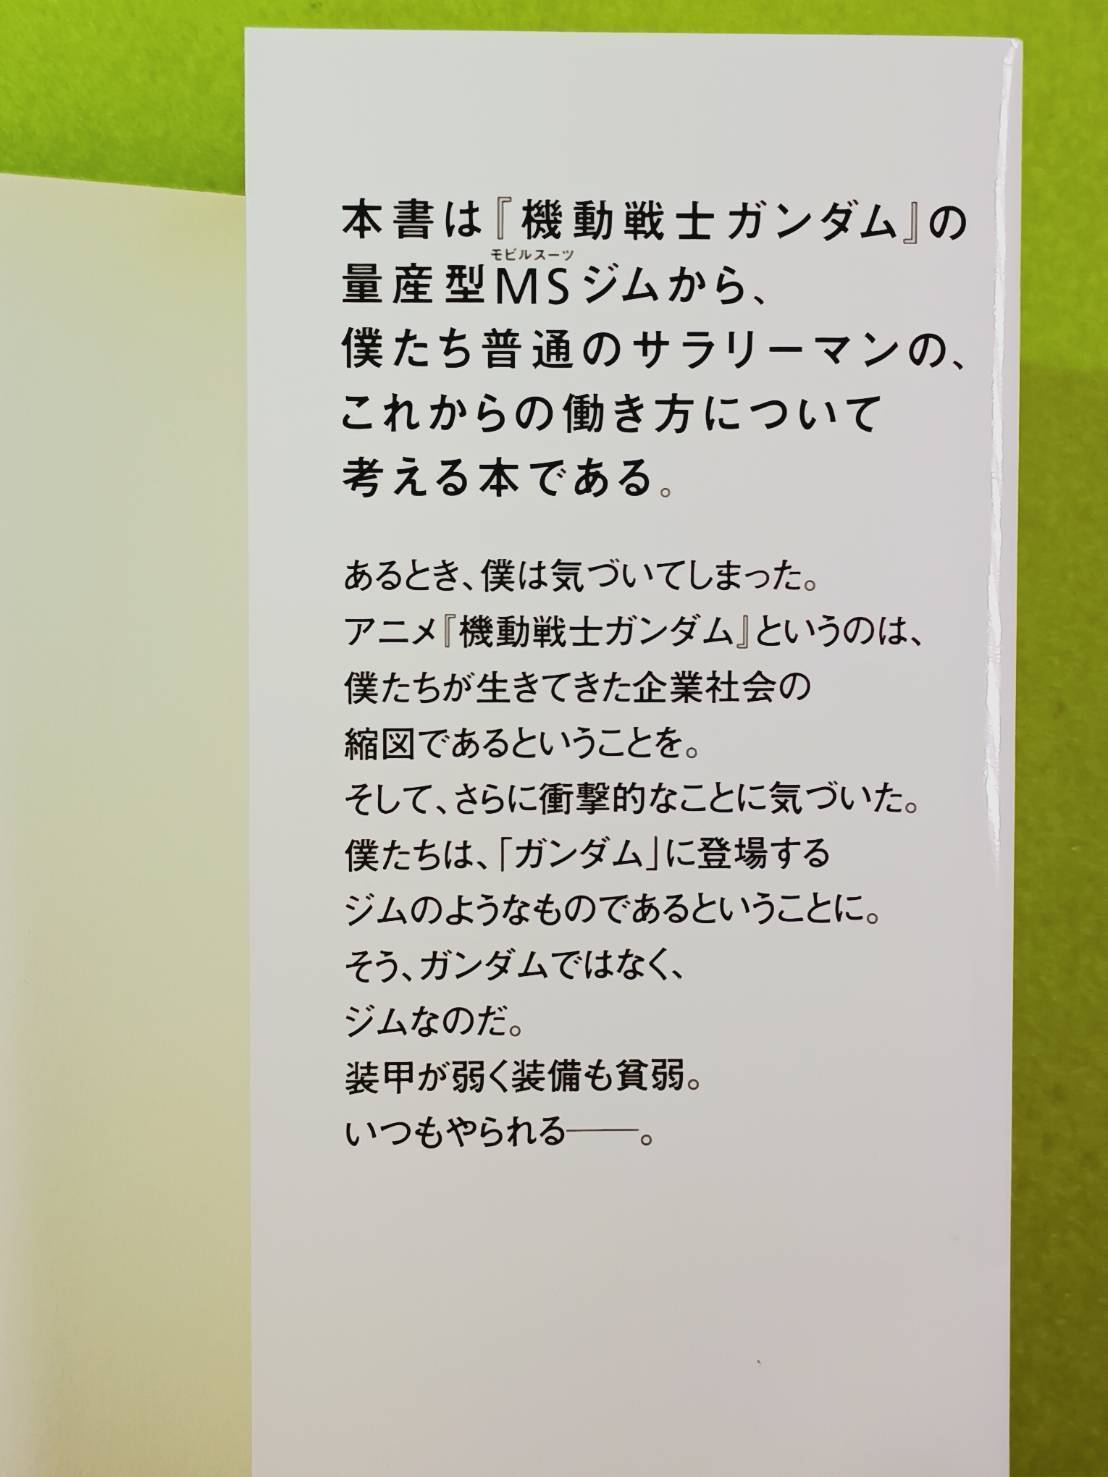 本書は『機動戦士ガンダム』の
モビルスーツ
量産型MSジムから、
僕たち普通のサラリーマンの、
これからの働き方について
考える本である。
あるとき、僕は気づいてしまった。
アニメ『機動戦士ガンダム』というのは、
僕たちが生きてきた企業社会の
縮図であるということを。
そして、さらに衝撃的なことに気づいた。
僕たちは、「ガンダム」に登場する
ジムのようなものであるということに。
そう、ガンダムではなく、
ジムなのだ。
装甲が弱く装備も貧弱。
いつもやられる――。